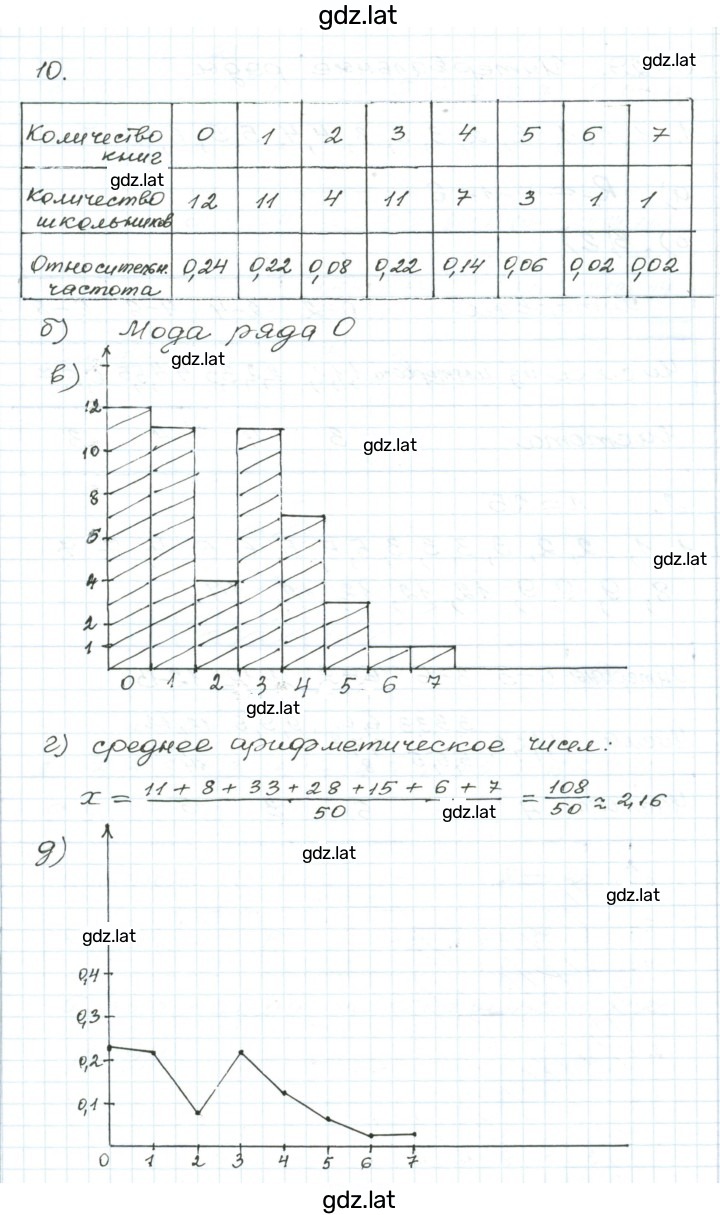 gdz.lat
gdz.lat
10.
Количество книг 0 1 2 3 4 5 6 7
gdz.lat
Количество школьников 12 11 4 11 7 3 1 1
Относительн. частота 0,24 0,22 0,08 0,22 0,14 0,06 0,02 0,02
б) Мода ряда 0
gdz.lat
в)
12
10
gdz.lat
8
6
gdz.lat
4
2
1
0 1 2 3 4 5 6 7
gdz.lat
г) среднее арифметическое чисел:
x = 11 + 8 + 33 + 28 + 15 + 6 + 7 / 50 = 108 / 50 ≈ 2,16
gdz.lat
д)
gdz.lat
gdz.lat
gdz.lat
0,4
0,3
0,2
0,1
0 1 2 3 4 5 6 7
gdz.lat